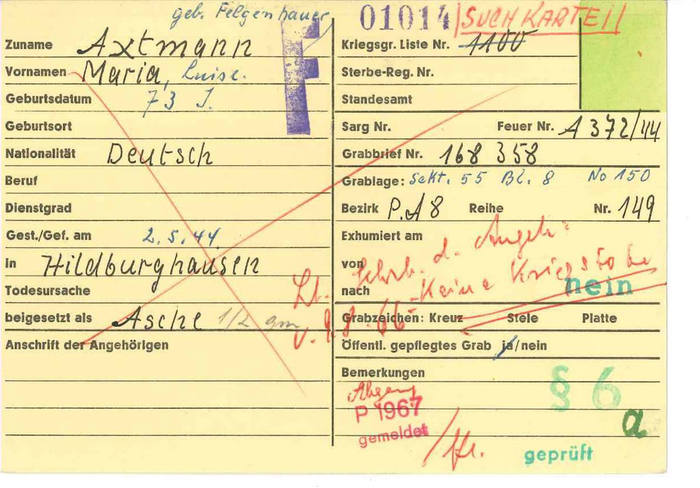 geb. Felgenhauer
01014 SUCHKARTEI
Zuname Axtmann
Vornamen Maria, Luise.
Geburtsdatum 73 J.
Geburtsort
Nationalität Deutsch
Beruf
Dienstgrad
Gest./Gef. am 2.5.44.
in Hildburghausen
Todesursache
beigesetzt als Asche 1/2 qm
Anschrift der Angehörigen
Kriegsgr. Liste Nr. 1100
Sterbe-Reg. Nr.
Standesamt
Sarg Nr. Feuer Nr. A 372/44
Grabbrief Nr. 168 358
Grablage: Sekt. 55 Bl. 8 No 150
Bezirk P.A8 Reihe Nr. 149
Exhumiert am
von Lt. Schrb. d. Angeh:
nach Keine Kriegstote
nein
Grabzeichen: Kreuz Stele Platte
Öffentl. gepflegtes Grab ja/nein
Bemerkungen
Abgang
P 1967
gemeldet
§ 6
a
geprüft